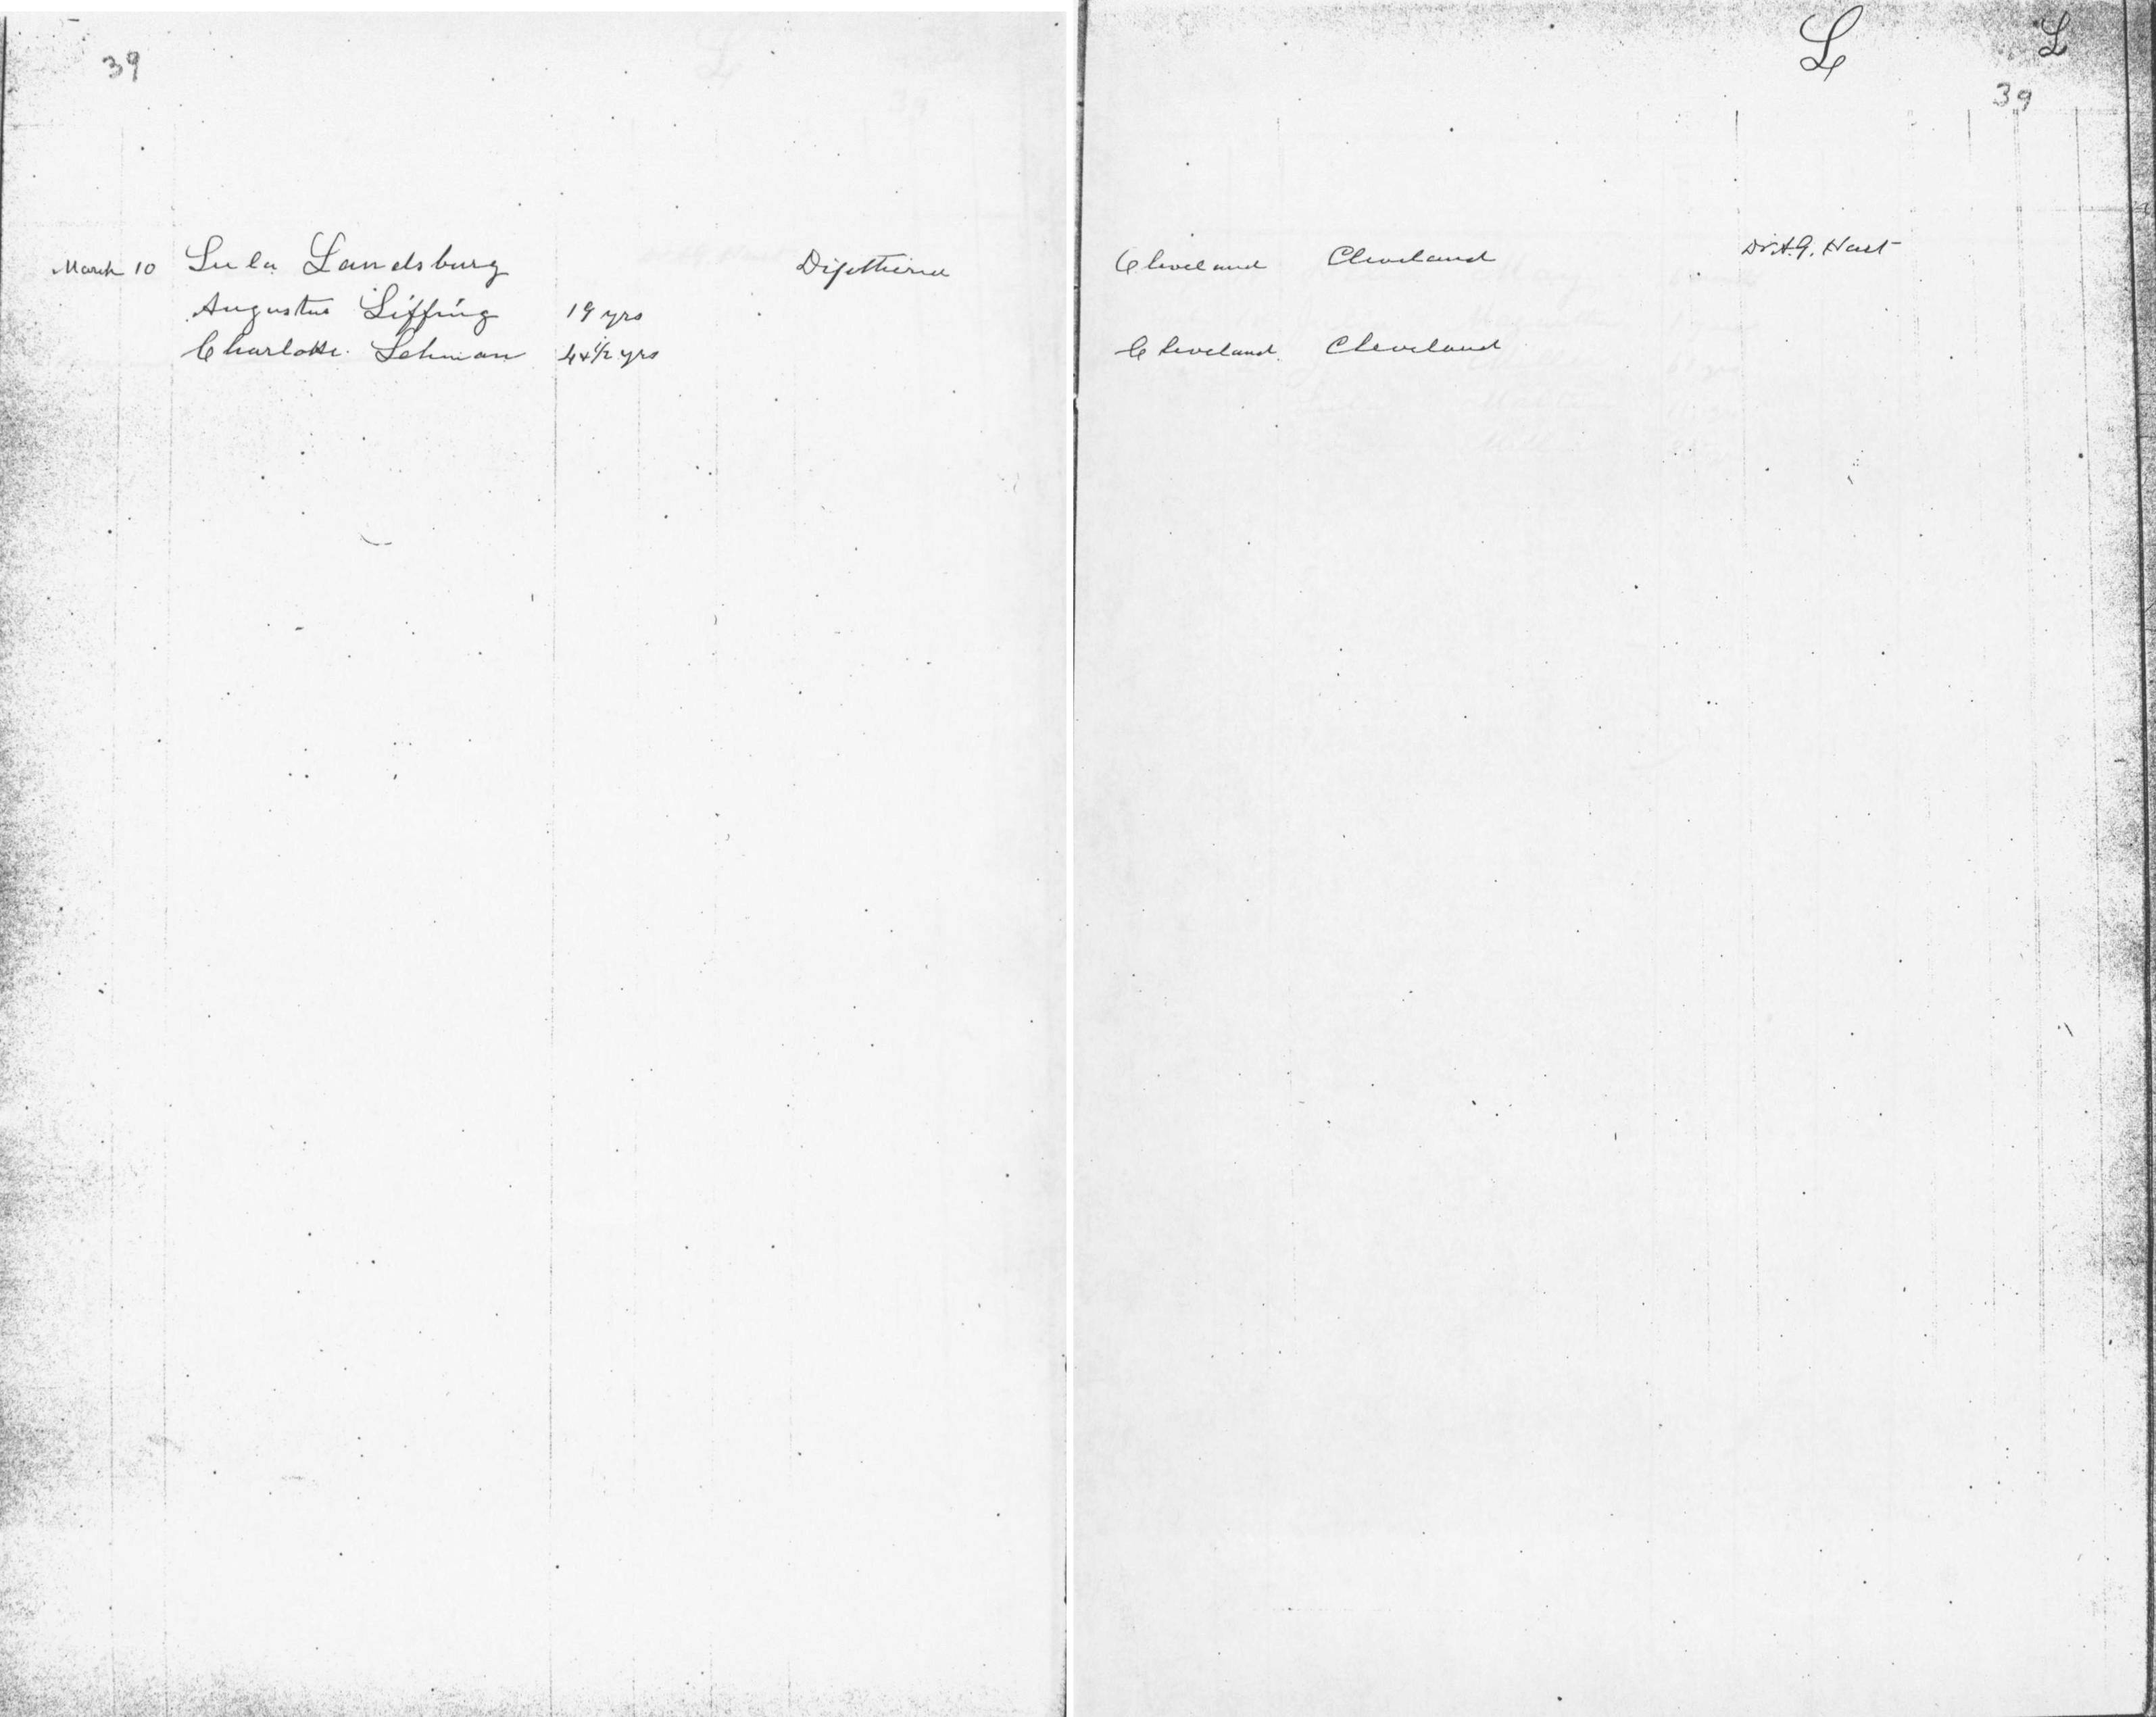 39
March 10 Lula Landsburg Diptheria
Augustus Liffring 19 yrs
Charlotte Lehman 44½ yrs
L L
39
Cleveland Cleveland Dr. A. G. Hart
Cleveland Cleveland